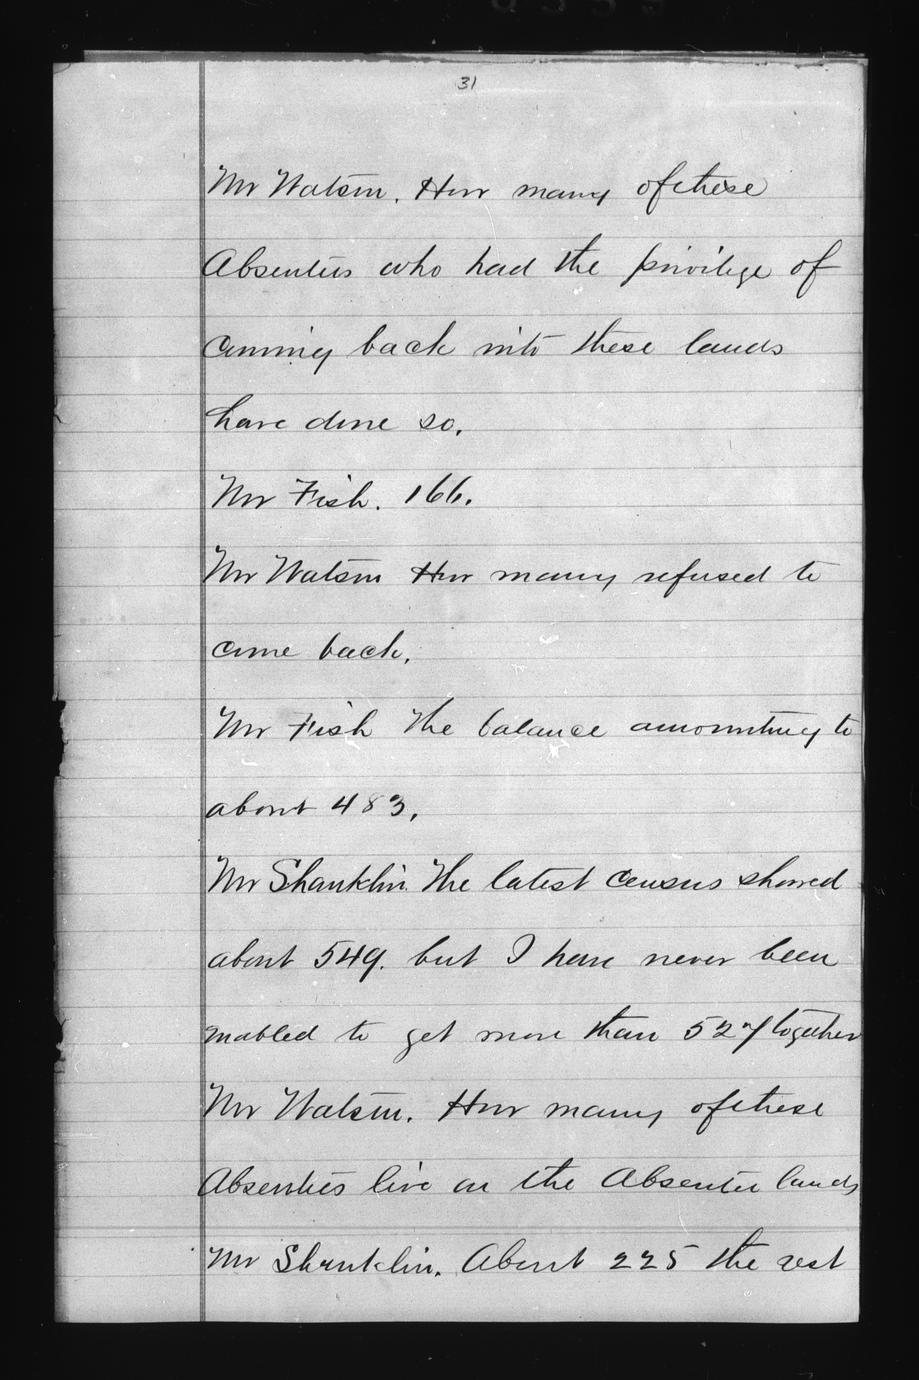 31
Mr Watson. How many of these
Absentees who had the privilege of
coming back into these lands
have done so.
Mr Fish. 166.
Mr Watson How many refused to
come back.
Mr Fish The balance amounting to
about 483.
Mr Shanklin. The latest census showed
about 549. but I have never been
enabled to get more than 527 together
Mr Watson. How many of these
Absentees live on the Absentee lands
Mr Shanklin. About 225 the rest